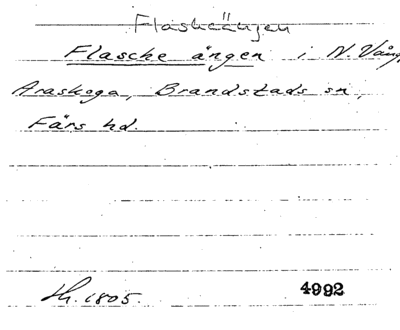 Flaskeängen
Flasche ången i N. Vång,
Araskoga, Brandstads sn,
Färs hd.
Lh. 1805. 4992